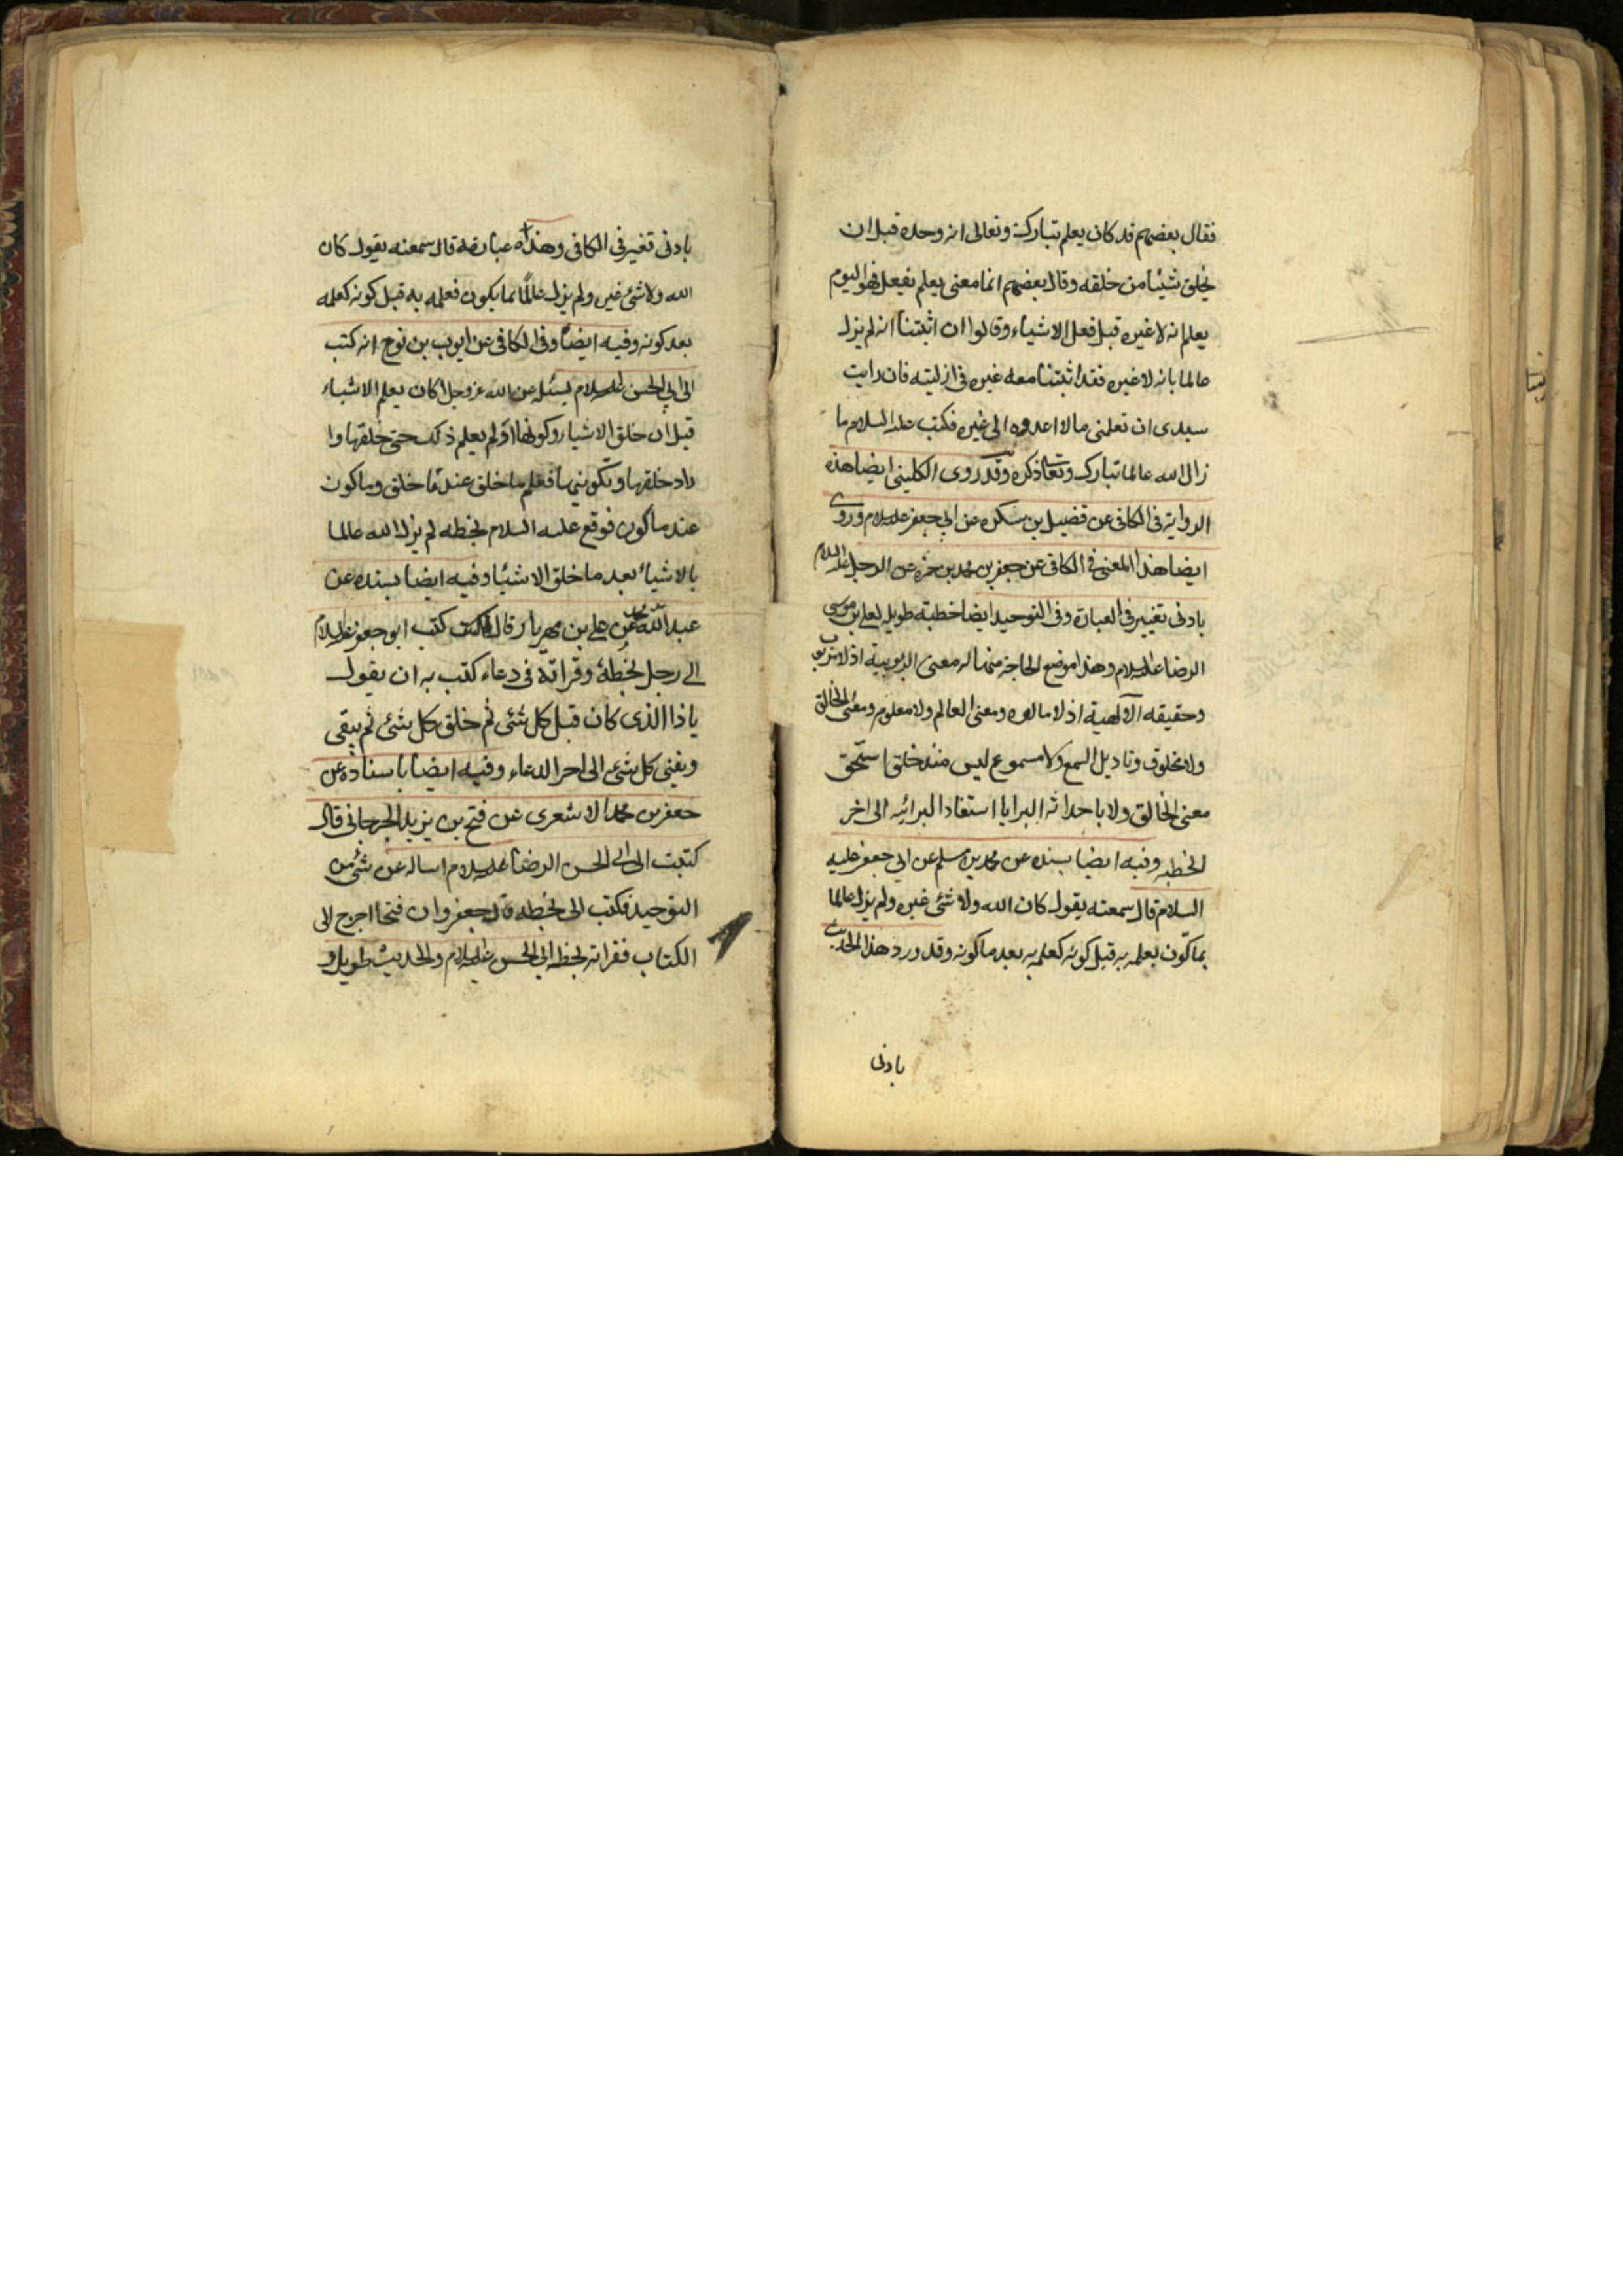 فقال بعضهم قد كان يعلم تبارك وتعالى انه وحده قبل ان
يخلق شيئا من خلقه وقال بعضهم انما معنى يعلم يفعل فهو اليوم
يعلم انه لا غيره قبل فعل الاشياء وقالوا ان اثبتنا انه لم يزل
عالما بانه لا غيره فقد اثبتنا معه غيره في ازليته فان رايت
سيدى ان تعلمنى ما لا اعدوه الى غيره فكتب عليه السلام ما
زال الله عالما تبارك وتعالى ذكره وقد روى الكليني ايضا هذه
الرواية فى الكافى عن فضيل بن سكره عن ابي جعفر عليه السلام وروى
ايضا هذا المعنى فى الكافى عن جعفر بن محمد بن حمزه عن الرجل عليه السلام
بادنى تغيير فى العبارة وفى التوحيد ايضا خطبة طويله لعلى بن موسى
الرضا عليه السلام وهذا موضع الحاجة منها له معنى الربوبية اذ لا مربوب
وحقيقه الالهية اذ لا مالوه ومعنى العالم ولا معلوم ومعنى الخالق
ولا مخلوق وتاويل السمع ولا مسموع ليس منذ خلق استحق
معنى الخالق ولا باحداثه البرايا استفاد البرائيه الى اخر
الخطبه وفيه ايضا بسنده عن محمد بن مسلم عن ابي جعفر عليه
السلام قال سمعته يقول كان الله ولا شئ غيره ولم يزل عالما
بما كون بعلمه به قبل كونه كعلمه به بعد ما كونه وقد ورد هذا الحديث
بادنى
بادنى تغير فى الكافى وهذه عبارته قال سمعته يقول كان
الله ولا شئ غيره ولم يزل عالما بما يكون فعلمه به قبل كونه كعلمه
بعد كونه وفيه ايضا وفى الكافى عن ايوب بن نوح انه كتب
الى ابي الحسن عليه السلام يسئله عن الله عز وجل اكان يعلم الاشياء
قبل ان خلق الاشياء وكونها او لم يعلم ذلك حتى خلقها وا
راد خلقها وتكوينها فعلم ما خلق عند ما خلق وما كون
عند ما كون فوقع عليه السلام بخطه لم يزل الله عالما
بالاشياء بعد ما خلق الاشياء وفيه ايضا بسنده عن
عبد الله عن على بن مهزيار قال كتب ابو جعفر عليه السلام
الى رجل بخطه وقراته فى دعاء كتب به ان يقول
يا ذا الذى كان قبل كل شئ ثم خلق كل شئ ثم يبقى
ويفنى كل شئ الى اخر الدعاء وفيه ايضا باسناده عن
جعفر بن محمد الاشعرى عن فتح بن يزيد الجرجانى قال
كتبت الى ابى الحسن الرضا عليه السلام اساله عن شئ من
التوحيد فكتب الى بخطه قال جعفر وان فتحا اخرج الى
الكتاب فقراته بخط ابي الحسن عليه السلام والحديث طويل و